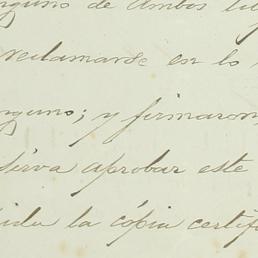 nguno de ambos
reclamarse en lo
nguno; y firmaron
sirva aprobar este
ida la cópia certifi